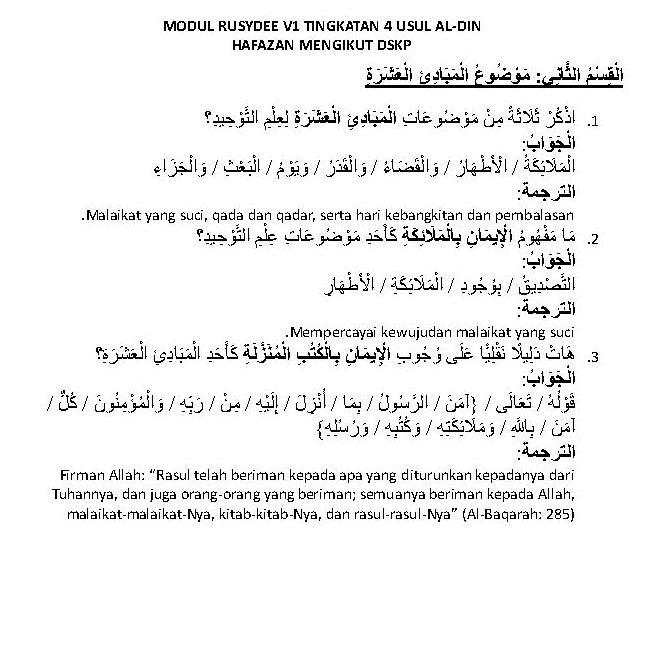 MODUL RUSYDEE V1 TINGKATAN 4 USUL AL-DIN
HAFAZAN MENGIKUT DSKP
القِسْمُ الثَّانِي: مَوْضُوعُ الْمَبَادِئِ الْعَشَرَةِ
1. اذْكُرْ ثَلَاثَةً مِنْ مَوْضُوعَاتِ الْمَبَادِئِ الْعَشَرَةِ لِعِلْمِ التَّوْحِيدِ؟
الْجَوَابُ:
الْمَلَائِكَةُ / الْأَطْهَارُ / وَالْقَضَاءُ / وَالْقَدَرُ / وَيَوْمُ / الْبَعْثِ / وَالْجَزَاءِ
الترجمة:
Malaikat yang suci, qada dan qadar, serta hari kebangkitan dan pembalasan.
2. مَا مَفْهُومُ الْإِيمَانِ بِالْمَلَائِكَةِ كَأَحَدِ مَوْضُوعَاتِ عِلْمِ التَّوْحِيدِ؟
الْجَوَابُ:
التَّصْدِيقُ / بِوُجُودِ / الْمَلَائِكَةِ / الْأَطْهَارِ
الترجمة:
Mempercayai kewujudan malaikat yang suci.
3. هَاتْ دَلِيلًا نَقْلِيًّا عَلَى وُجُوبِ الْإِيمَانِ بِالْكُتُبِ الْمُنَزَّلَةِ كَأَحَدِ الْمَبَادِئِ الْعَشَرَةِ؟
الْجَوَابُ:
قَوْلُهُ / تَعَالَى / {آمَنَ / الرَّسُولُ / بِمَا / أُنْزِلَ / إِلَيْهِ / مِنْ / رَبِّهِ / وَالْمُؤْمِنُونَ / كُلٌّ /
آمَنَ / بِاللَّهِ / وَمَلَائِكَتِهِ / وَكُتُبِهِ / وَرُسُلِهِ}
الترجمة:
Firman Allah: “Rasul telah beriman kepada apa yang diturunkan kepadanya dari
Tuhannya, dan juga orang-orang yang beriman; semuanya beriman kepada Allah,
malaikat-malaikat-Nya, kitab-kitab-Nya, dan rasul-rasul-Nya” (Al-Baqarah: 285)